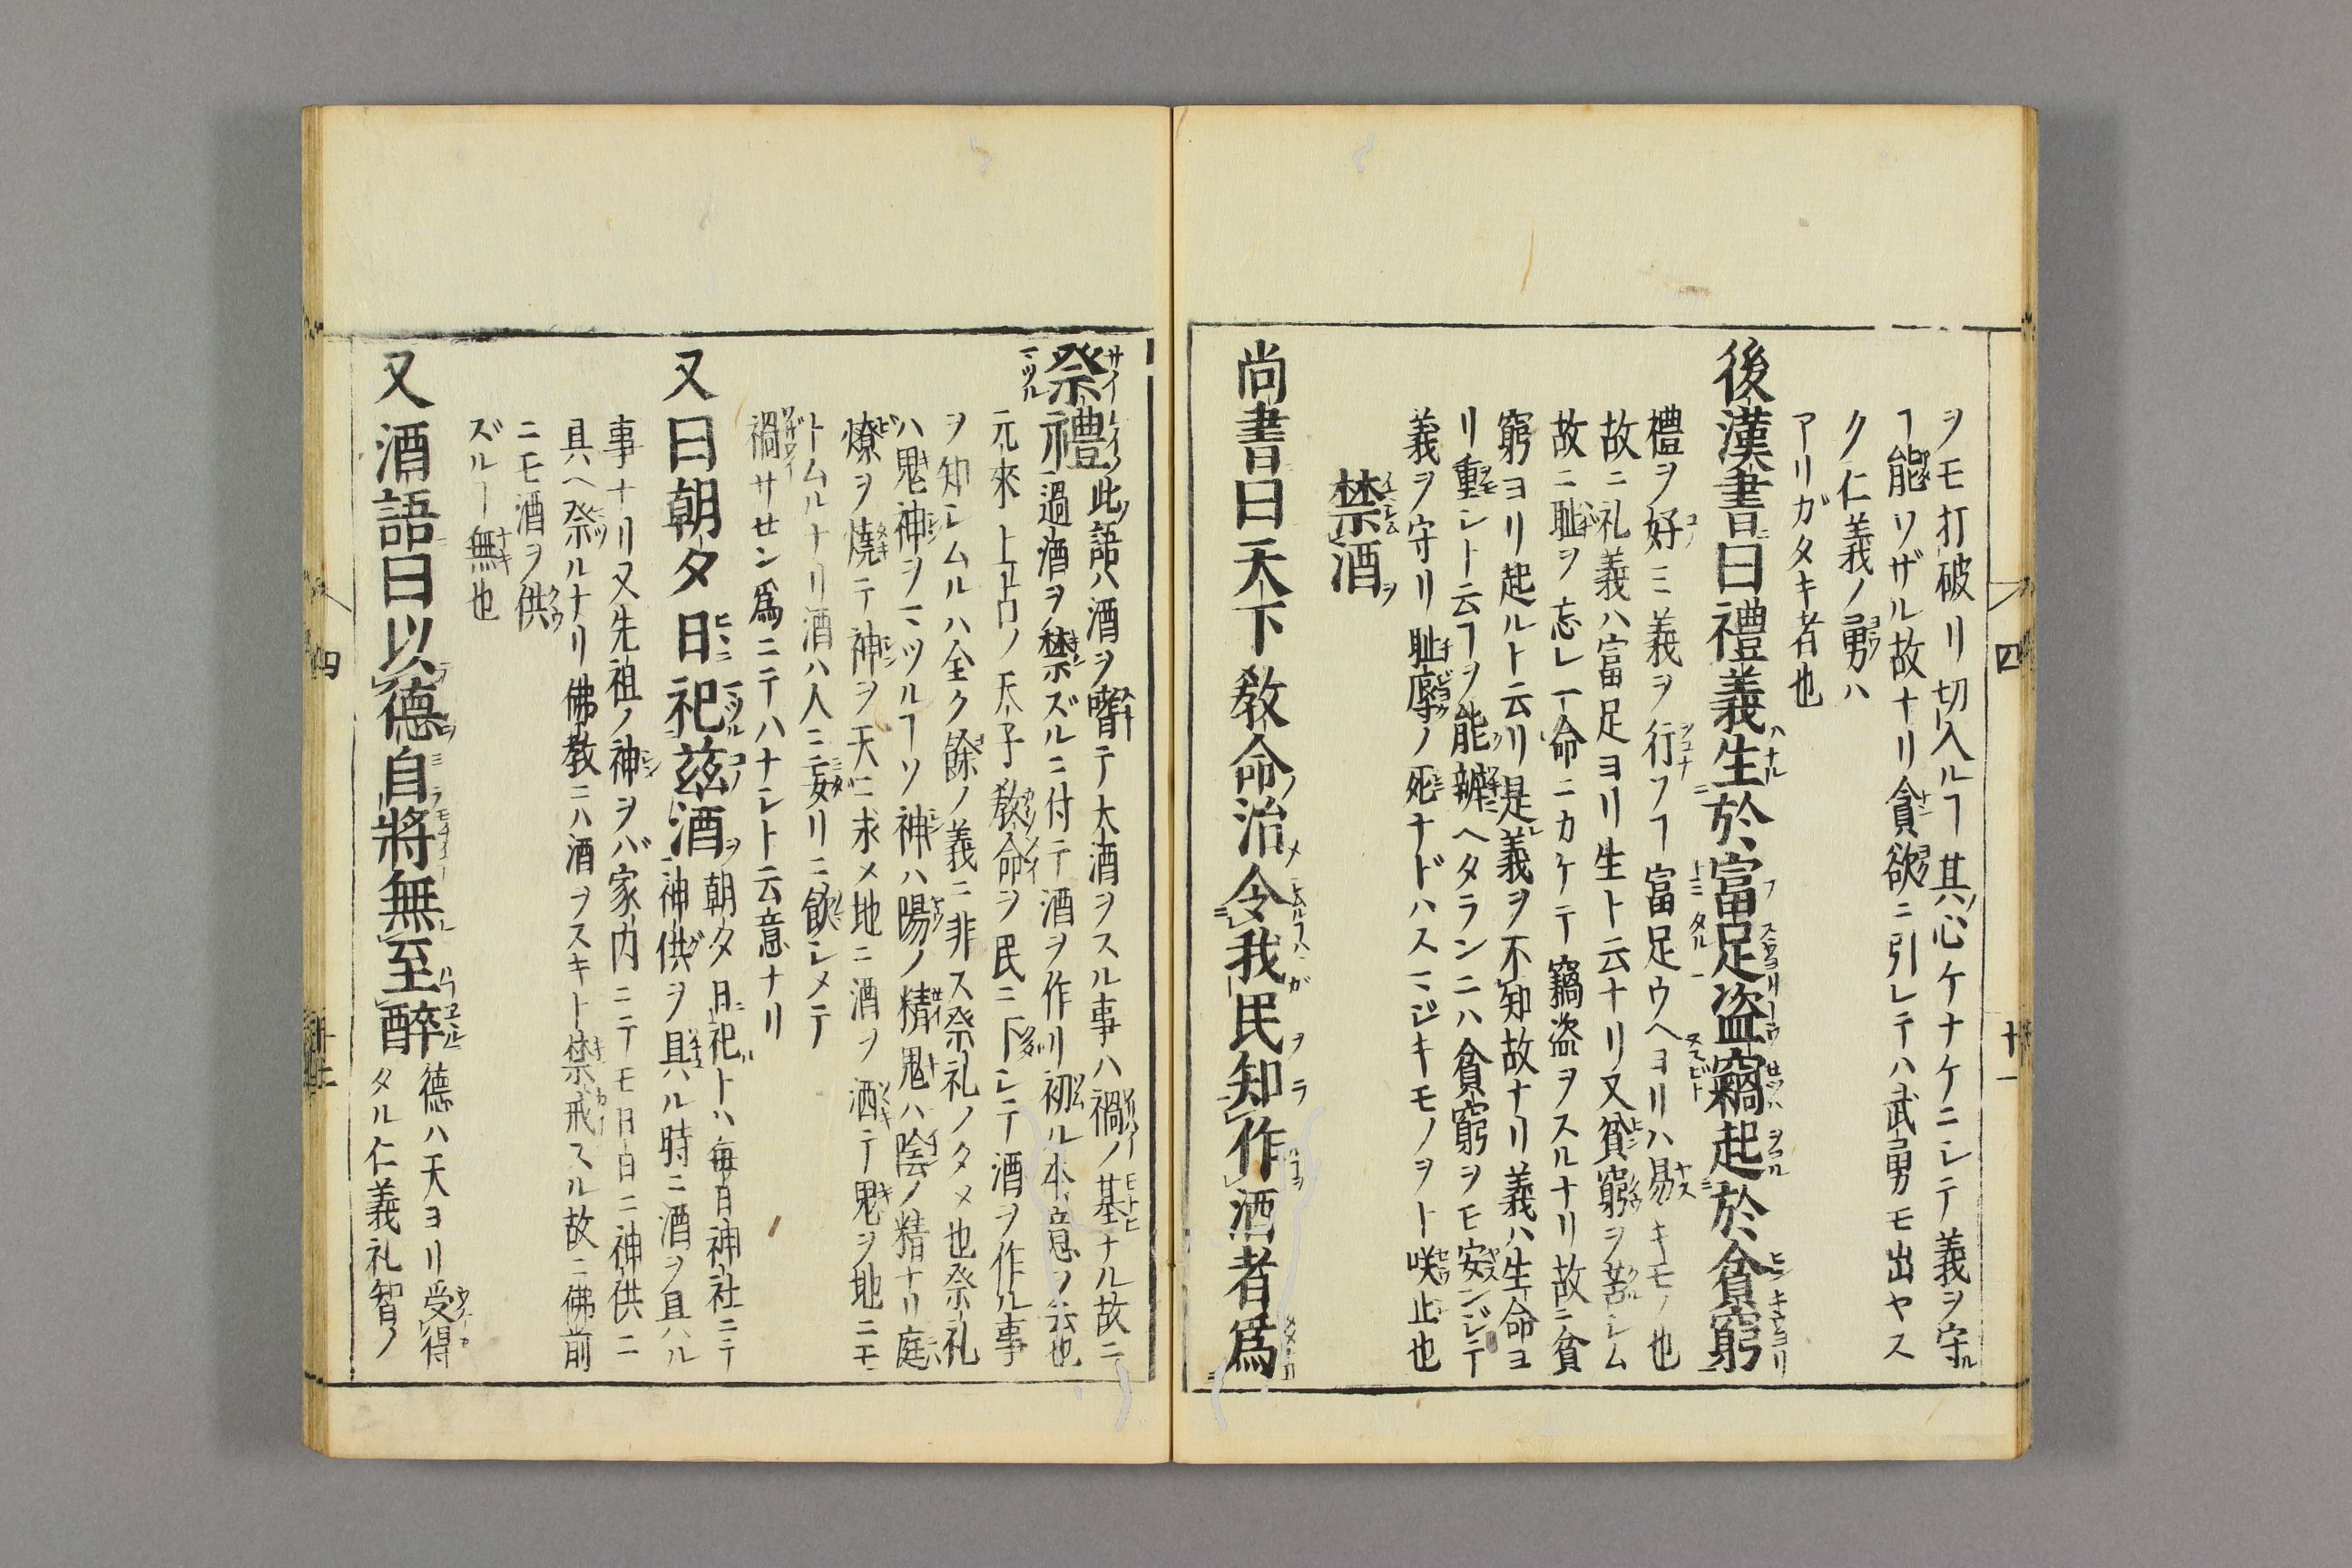 ヲモ打破リ切入ルヿ其心ケナケニシテ義ヲ守ル
ヿ能ワザル故ナリ貪欲ニ引レテハ武勇モ出ヤス
ク仁義ノ勇ハ
アリガタキ者也
後漢書曰禮義生於富足盗竊起於貧窮
禮ヲ好ミ義ヲ行フヿ富足ウヘヨリハ易キモノ也
故ニ礼義ハ富足ヨリ生ト云ナリ又貧窮ヲ苦シム
故ニ耻ヲ忘レ一命ニカケテ竊盗ヲスルナリ故ニ貧
窮ヨリ起ルト云リ是義ヲ不知故ナリ義ハ生命ヨ
リ重シト云ヿヲ能辨ヘタランニハ貧窮ヲモ安ンジテ
義ヲ守リ耻辱ノ死ナドハスマジキモノヲト咲止也
禁酒
尚書曰天下教命治令我民知作酒者爲
四
十一
祭禮此語ハ酒ヲ嘗テ大酒ヲスル事ハ禍ノ基ナル故ニ
過酒ヲ禁ズルニ付テ酒ヲ作リ初ル本意ヲ云也
元來上古ノ天子教命ヲ民ニ下シテ酒ヲ作ル事
ヲ知レムルハ全ク餘ノ義ニ非ス祭礼ノタメ也祭礼
ハ鬼神ヲマツルヿソ神ハ陽ノ精鬼ハ陰ノ精ナリ庭
燎ヲ燒テ神ヲ天ニ求メ地ニ酒ヲ洒テ鬼ヲ地ニモ
トムルナリ酒ハ人ニ妄リニ飮シメテ
禍サセン爲ニテハナシト云意ナリ
又曰朝夕日祀茲酒朝夕日祀トハ毎日神社ニテ
神供ヲ具ル時ニ酒ヲ具ハル
事ナリ又先祖ノ神ヲバ家内ニテモ日日ニ神供ニ
具ヘ祭ルナリ佛教ニハ酒ヲスキト禁戒スル故ニ佛前
ニモ酒ヲ供
ズルヿ無也
又酒語曰以德自將無至醉德ハ天ヨリ受得
タル仁義礼智ノ
四